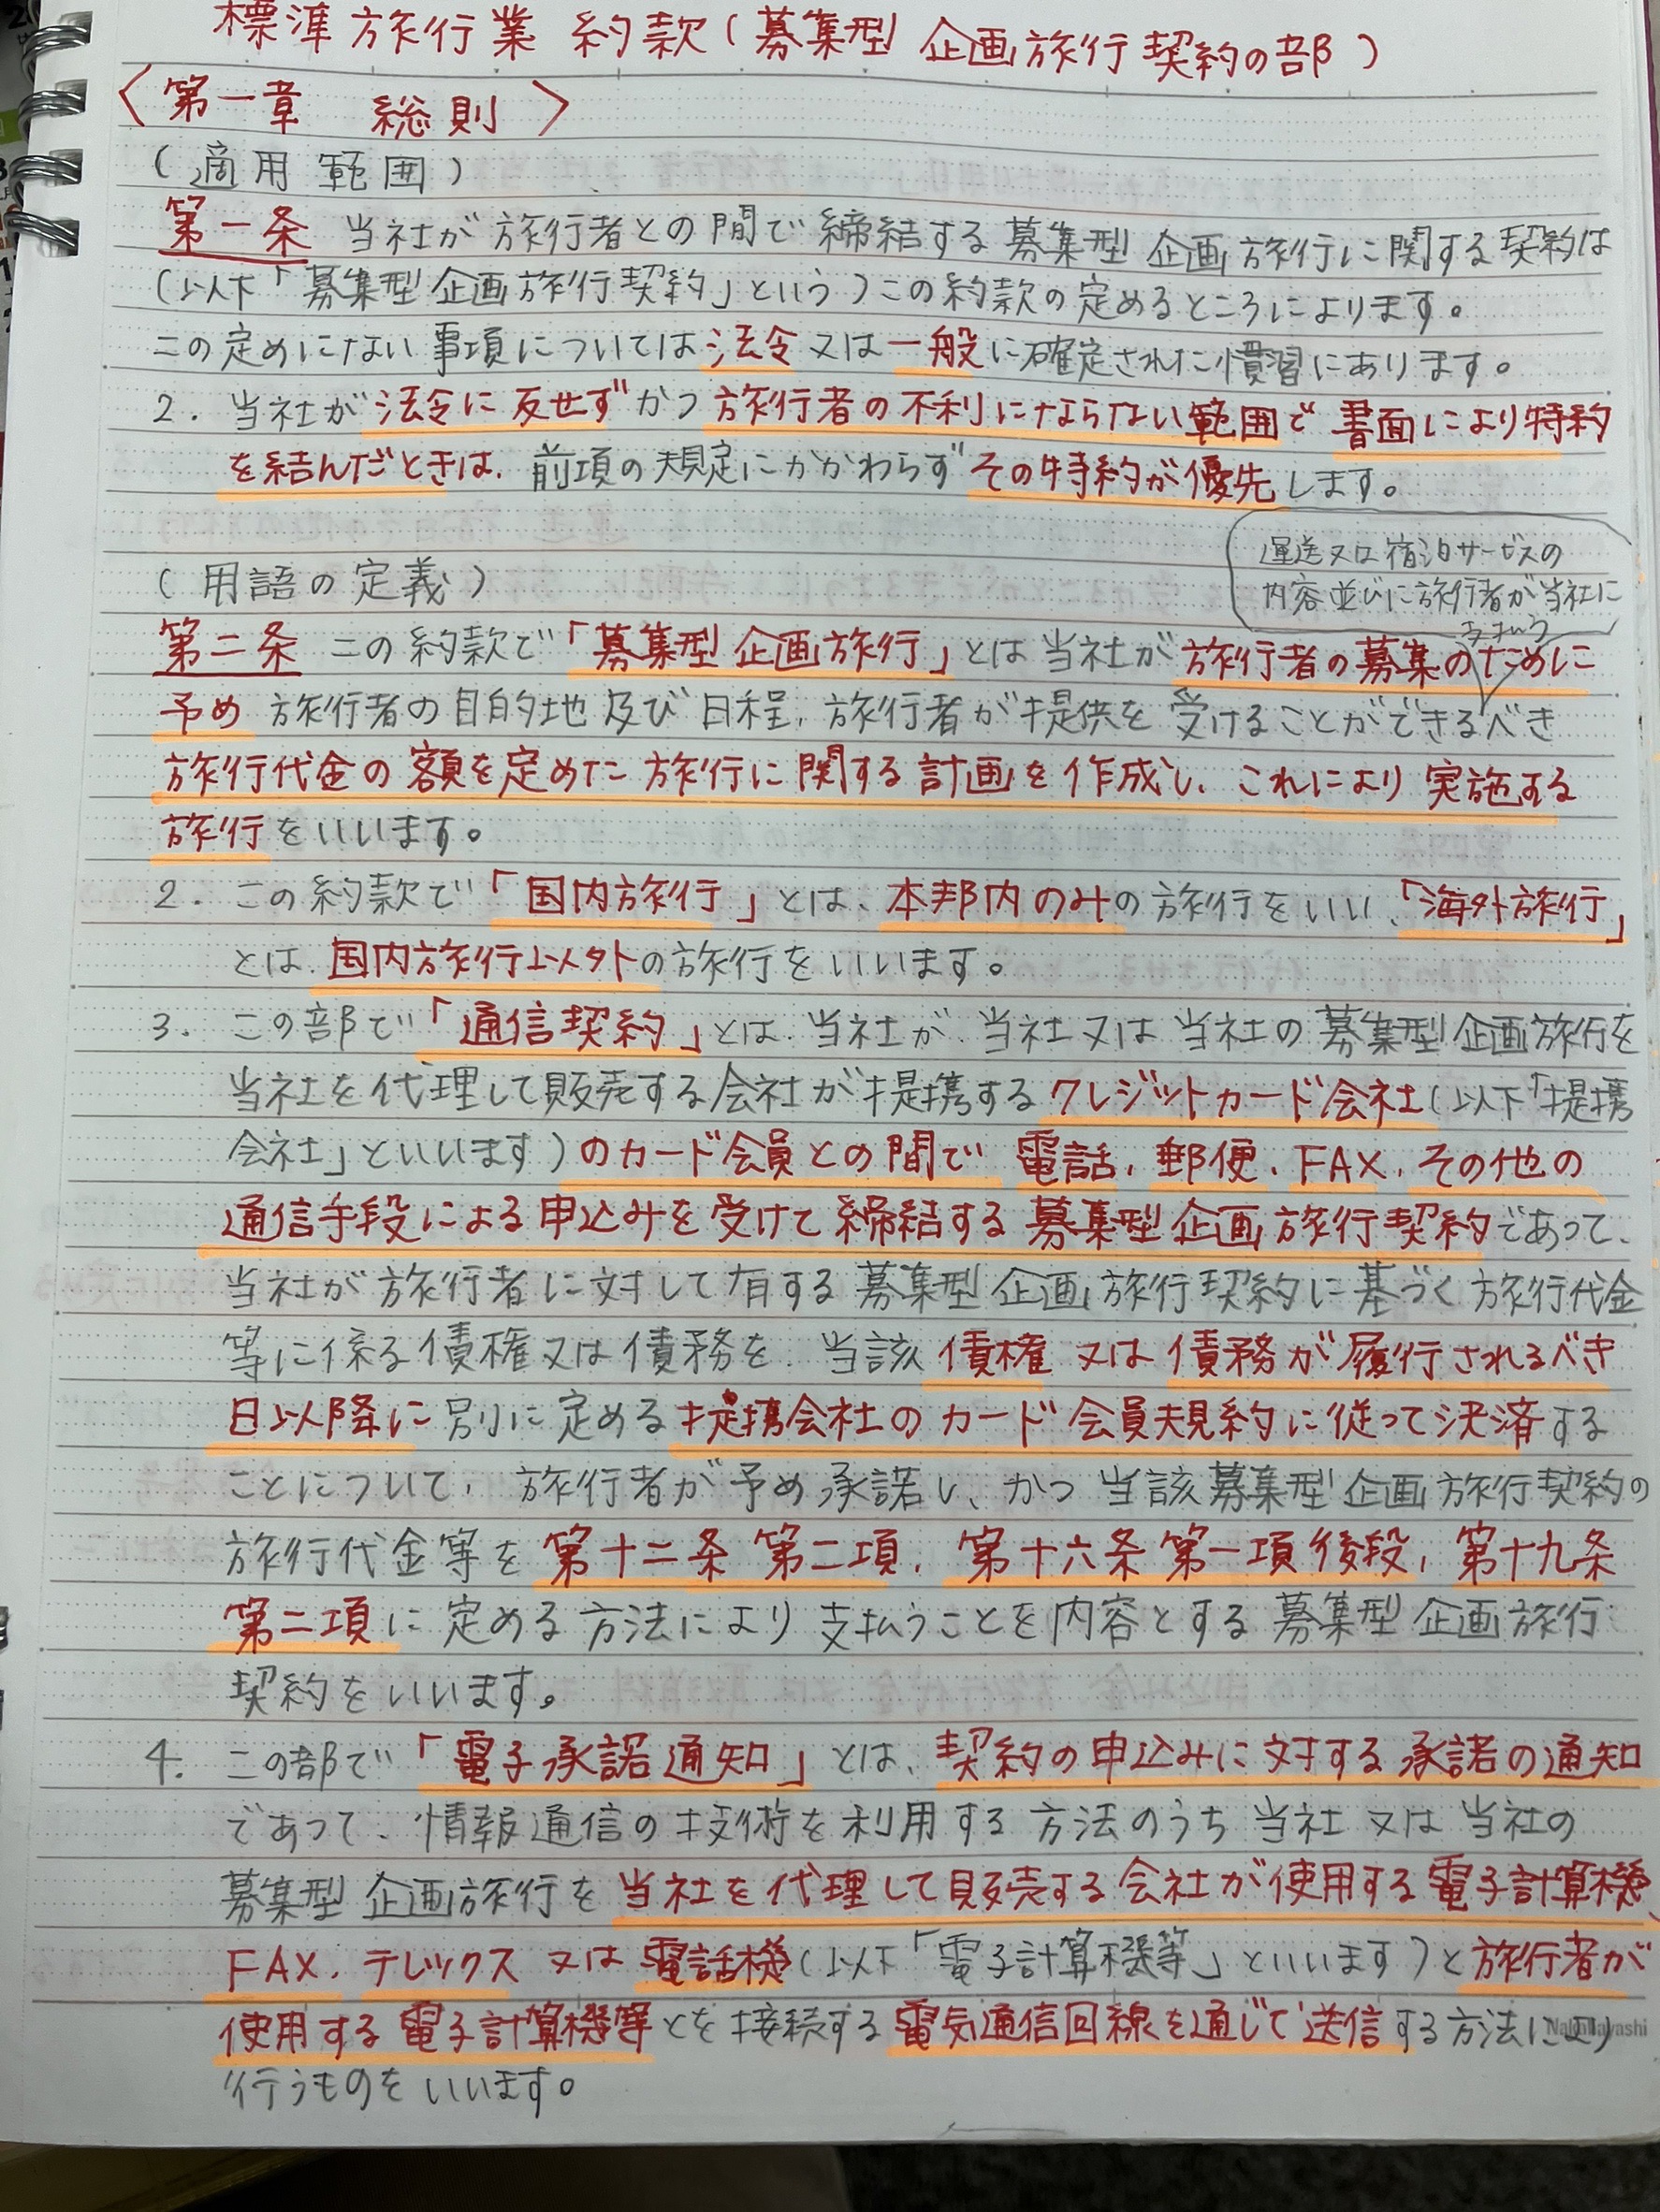 標準旅行業約款(募集型企画旅行契約の部)
〈第一章 総則〉
(適用範囲)
第一条 当社が旅行者との間で締結する募集型企画旅行に関する契約は
(以下「募集型企画旅行契約」という)この約款の定めるところによります。
この定めにない事項については法令又は一般に確定された慣習にあります。
2. 当社が法令に反せずかつ旅行者の不利にならない範囲で書面により特約
を結んだときは、前項の規定にかかわらずその特約が優先します。
運送又は宿泊サービスの
内容並びに旅行者が当社に
支払う
(用語の定義)
第二条 この約款で「募集型企画旅行」とは当社が旅行者の募集のために
予め旅行者の目的地及び日程、旅行者が提供を受けることができるべき
旅行代金の額を定めた旅行に関する計画を作成し、これにより実施する
旅行をいいます。
2. この約款で「国内旅行」とは、本邦内のみの旅行をいい、「海外旅行」
とは、国内旅行以外の旅行をいいます。
3. この部で「通信契約」とは、当社が、当社又は当社の募集型企画旅行を
当社を代理して販売する会社が提携するクレジットカード会社(以下「提携
会社」といいます)のカード会員との間で電話、郵便、FAX、その他の
通信手段による申込みを受けて締結する募集型企画旅行契約であって、
当社が旅行者に対して有する募集型企画旅行契約に基づく旅行代金
等に係る債権又は債務を、当該債権又は債務が履行されるべき
日以降に別に定める提携会社のカード会員規約に従って決済する
ことについて、旅行者が予め承諾し、かつ当該募集型企画旅行契約の
旅行代金等を第十二条第二項、第十六条第一項後段、第十九条
第二項に定める方法により支払うことを内容とする募集型企画旅行
契約をいいます。
4. この部で「電子承諾通知」とは、契約の申込みに対する承諾の通知
であって、情報通信の技術を利用する方法のうち当社又は当社の
募集型企画旅行を当社を代理して販売する会社が使用する電子計算機、
FAX、テレックス又は電話機(以下「電子計算機等」といいます)と旅行者が
使用する電子計算機等とを接続する電気通信回線を通じて送信する方法により
行うものをいいます。
Nakabayashi